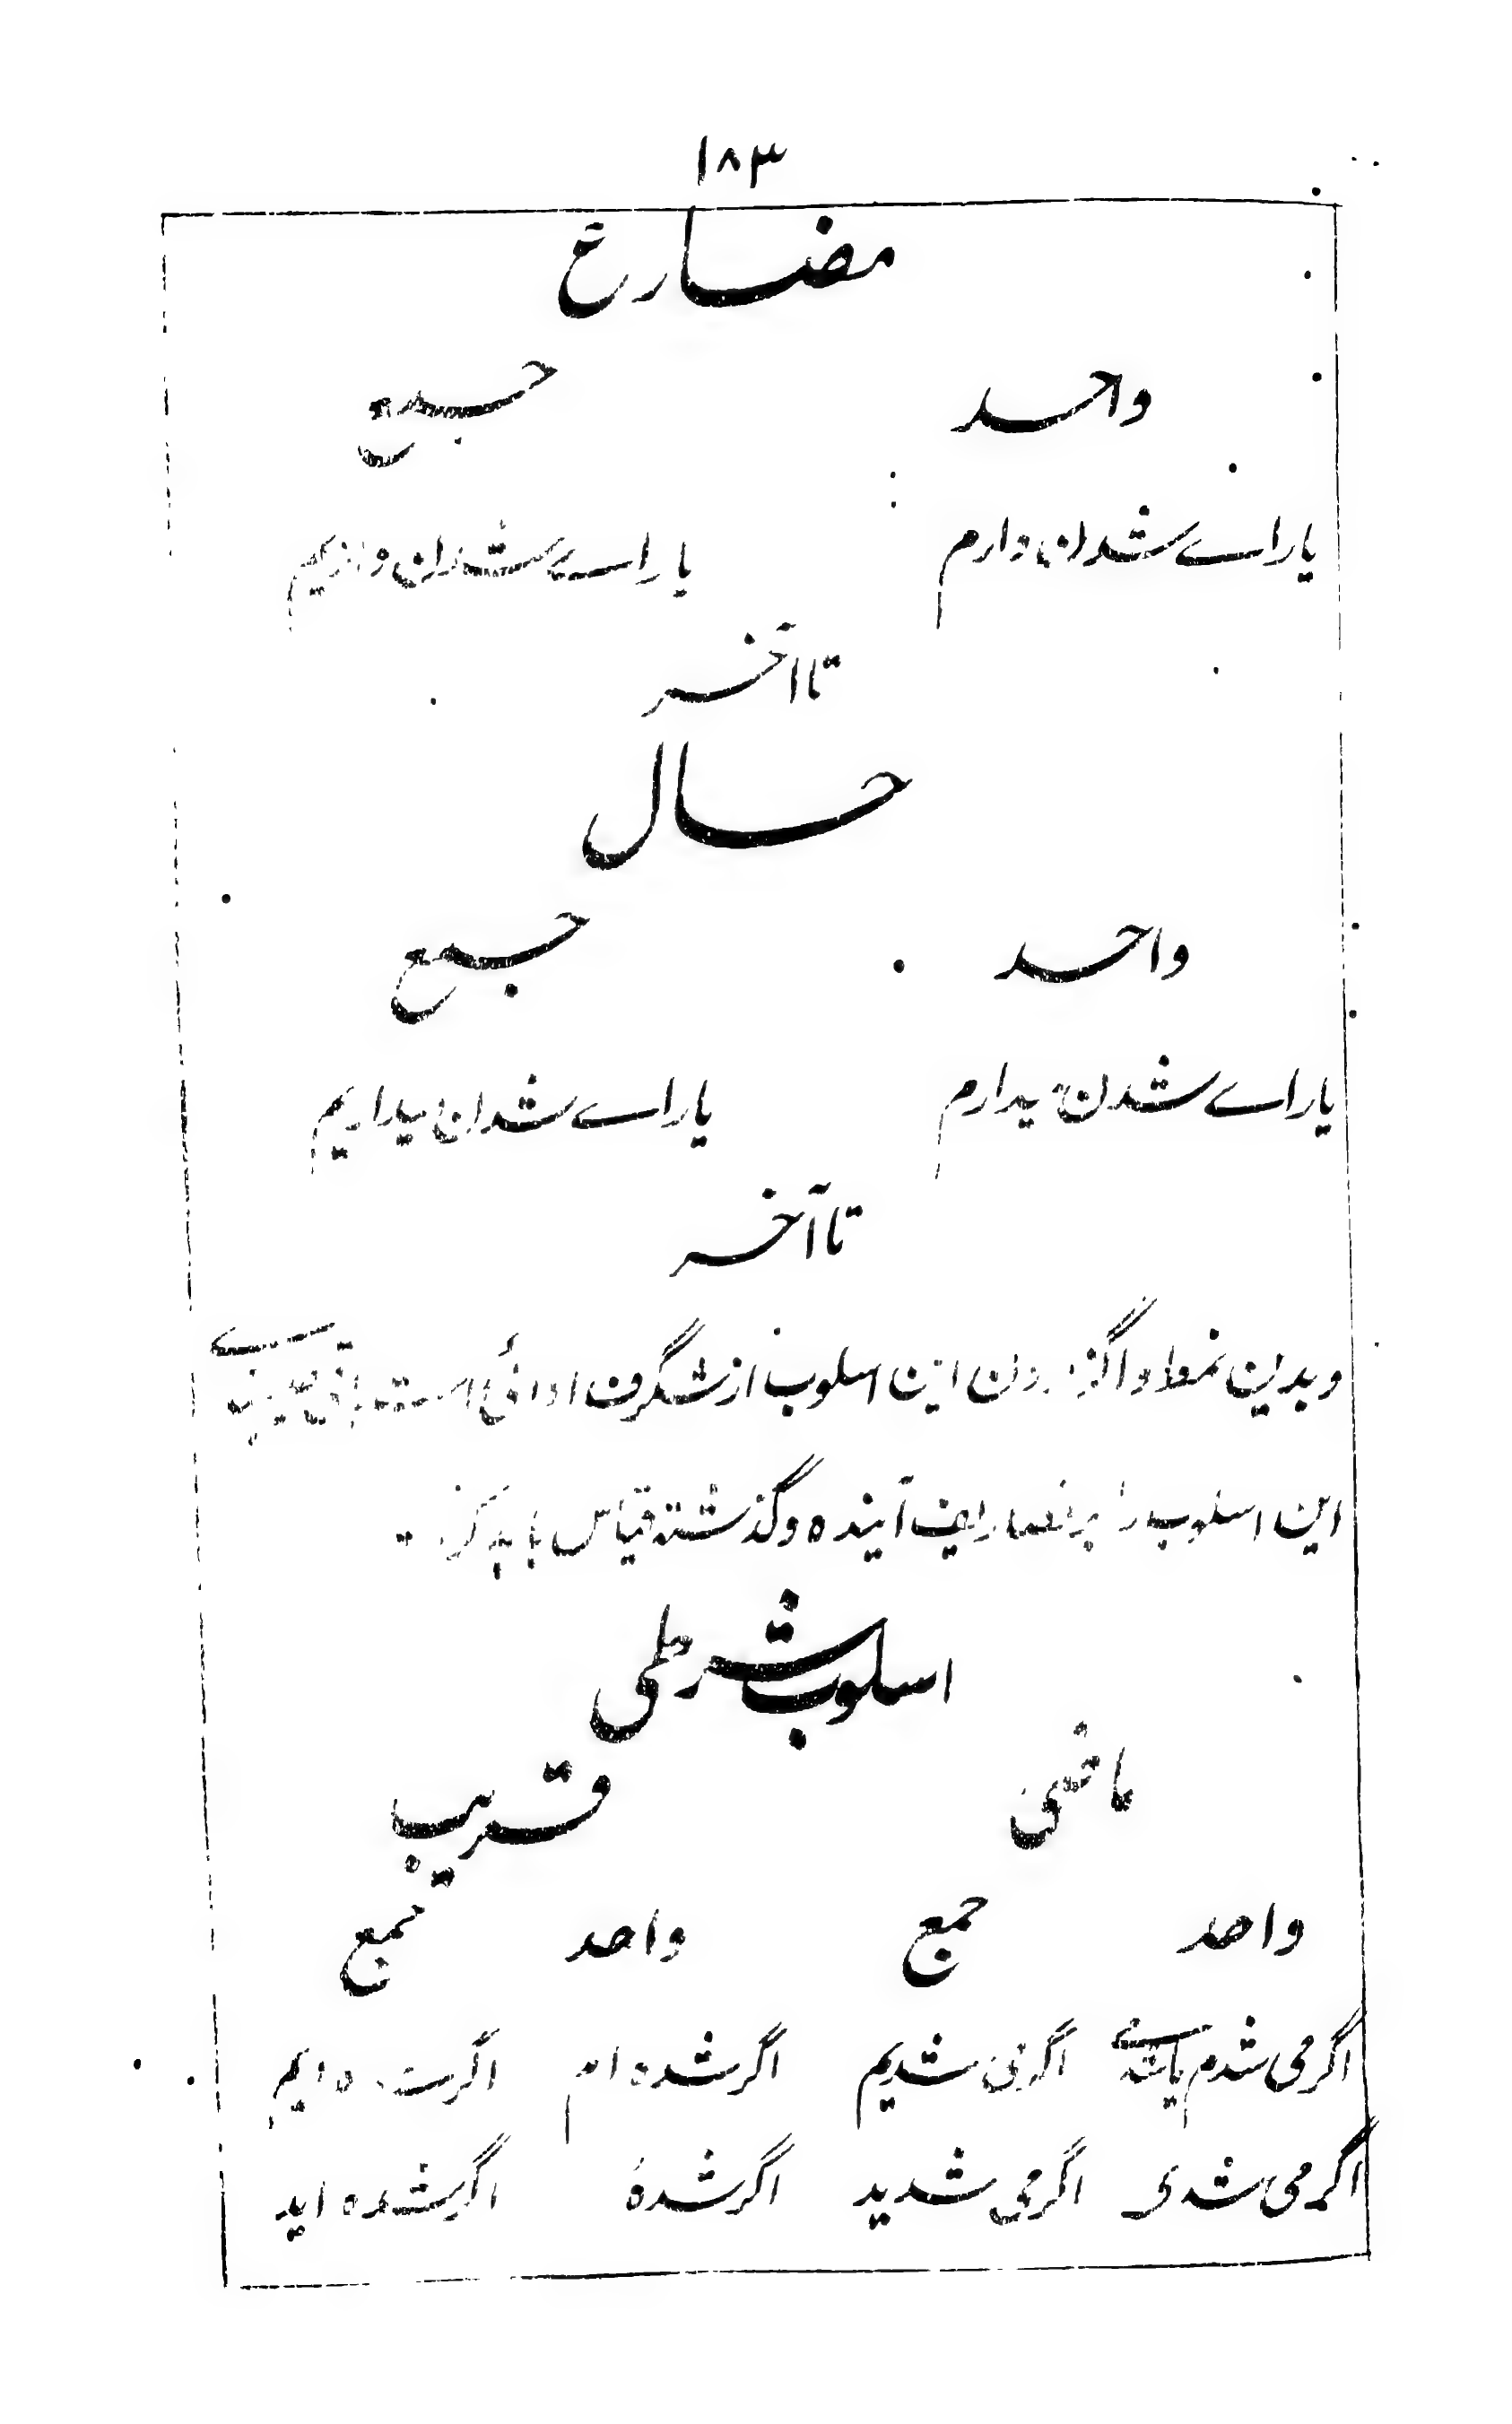 ۱۸۳
مضارع
واحد جمع
یارا‌ے شدن دارم یارا‌ے شدن داریم
تا آخر
حال
واحد جمع
یارا‌ے شدن میدارم یارا‌ے شدن میداریم
تا آخر
و بدین نمط واگزاردن این اسلوب از شگرف ادائی است
این اسلوب را بر تصاریف آینده و گذشته قیاس باید کرد
اسلوب شرطی
ماضی قریب
واحد جمع واحد جمع
اگر می شدم یا شدمے اگر می شدیم اگر شده ام اگر شده ایم
اگر می شدی اگر می شدید اگر شدهٔ اگر شده اید